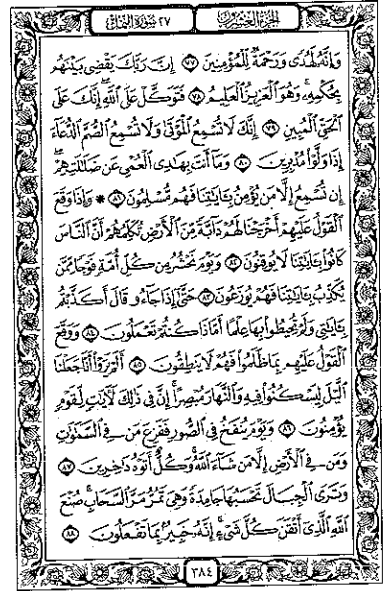 الجزء العشرون
٢٧ سورة النمل
وَإِنَّهُۥ لَهُدًى وَرَحْمَةٌ لِّلْمُؤْمِنِينَ ٧٧ إِنَّ رَبَّكَ يَقْضِى بَيْنَهُم
بِحُكْمِهِۦ وَهُوَ ٱلْعَزِيزُ ٱلْعَلِيمُ ٧٨ فَتَوَكَّلْ عَلَى ٱللَّهِ إِنَّكَ عَلَى
ٱلْحَقِّ ٱلْمُبِينِ ٧٩ إِنَّكَ لَا تُسْمِعُ ٱلْمَوْتَىٰ وَلَا تُسْمِعُ ٱلصُّمَّ ٱلدُّعَآءَ
إِذَا وَلَّوْا۟ مُدْبِرِينَ ٨٠ وَمَآ أَنتَ بِهَـٰدِى ٱلْعُمْىِ عَن ضَلَـٰلَتِهِمْ
إِن تُسْمِعُ إِلَّا مَن يُؤْمِنُ بِـَٔايَـٰتِنَا فَهُم مُّسْلِمُونَ ٨١ * وَإِذَا وَقَعَ
ٱلْقَوْلُ عَلَيْهِمْ أَخْرَجْنَا لَهُمْ دَآبَّةً مِّنَ ٱلْأَرْضِ تُكَلِّمُهُمْ أَنَّ ٱلنَّاسَ
كَانُوا۟ بِـَٔايَـٰتِنَا لَا يُوقِنُونَ ٨٢ وَيَوْمَ نَحْشُرُ مِن كُلِّ أُمَّةٍ فَوْجًا مِّمَّن
يُكَذِّبُ بِـَٔايَـٰتِنَا فَهُمْ يُوزَعُونَ ٨٣ حَتَّىٰٓ إِذَا جَآءُو قَالَ أَكَذَّبْتُم
بِـَٔايَـٰتِى وَلَمْ تُحِيطُوا۟ بِهَا عِلْمًا أَمَّاذَا كُنتُمْ تَعْمَلُونَ ٨٤ وَوَقَعَ
ٱلْقَوْلُ عَلَيْهِم بِمَا ظَلَمُوا۟ فَهُمْ لَا يَنطِقُونَ ٨٥ أَلَمْ يَرَوْا۟ أَنَّا جَعَلْنَا
ٱلَّيْلَ لِيَسْكُنُوا۟ فِيهِ وَٱلنَّهَارَ مُبْصِرًا إِنَّ فِى ذَٰلِكَ لَـَٔايَـٰتٍ لِّقَوْمٍ
يُؤْمِنُونَ ٨٦ وَيَوْمَ يُنفَخُ فِى ٱلصُّورِ فَفَزِعَ مَن فِى ٱلسَّمَـٰوَٰتِ
وَمَن فِى ٱلْأَرْضِ إِلَّا مَن شَآءَ ٱللَّهُ وَكُلٌّ أَتَوْهُ دَٰخِرِينَ ٨٧
وَتَرَى ٱلْجِبَالَ تَحْسَبُهَا جَامِدَةً وَهِىَ تَمُرُّ مَرَّ ٱلسَّحَابِ صُنْعَ
ٱللَّهِ ٱلَّذِىٓ أَتْقَنَ كُلَّ شَىْءٍ إِنَّهُۥ خَبِيرٌۢ بِمَا تَفْعَلُونَ ٨٨
٣٨٤